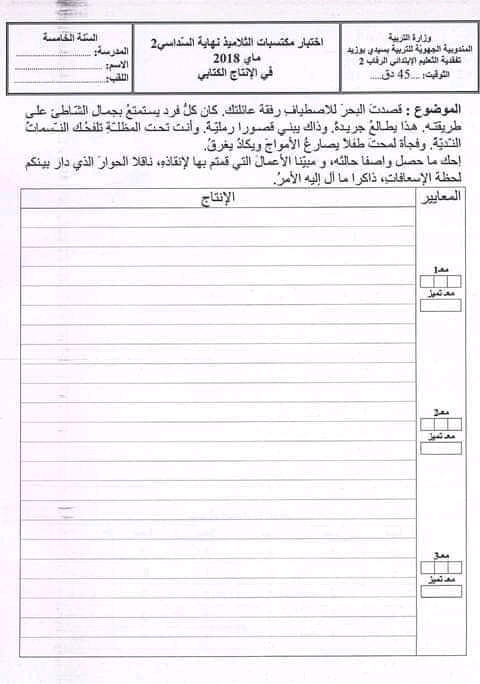 وزارة التربية
المندوبية الجهويّة للتربية بسيدي بوزيد
تفقدية التعليم الإبتدائي الرقاب 2
التوقيت: ...45 دق....
اختبار مكتسبات التلاميذ نهاية السّداسي2
ماي 2018
في الإنتاج الكتابي
السّنة الخامسة
المدرسة: ....................
الاسم: ....................
اللقب: ....................
الموضوع : قصدتَ البحرَ للاصطيافِ رفقة عائلتك. كان كلُّ فرد يستمتعُ بجمال الشّاطئ على
طريقته. هذا يطالعُ جريدةً. وذاك يبني قصورا رمليّة. وأنت تحت المظلّةِ تلفحُك النّسماتُ
النّديّةُ. وفجأة لمحتَ طفلا يصارعُ الأمواجَ ويكادُ يغرقُ.
إحك ما حصل واصفا حالتَه، و مبيّنا الأعمالَ التي قمتم بها لإنقاذِهِ، ناقلا الحوارَ الذي دار بينكم
لحظة الإسعافاتِ، ذاكرا ما آل إليه الأمرُ.
المعايير
الإنتاج
معـ1
معـ تميز
معـ2
معـ تميز
معـ3
معـ تميز